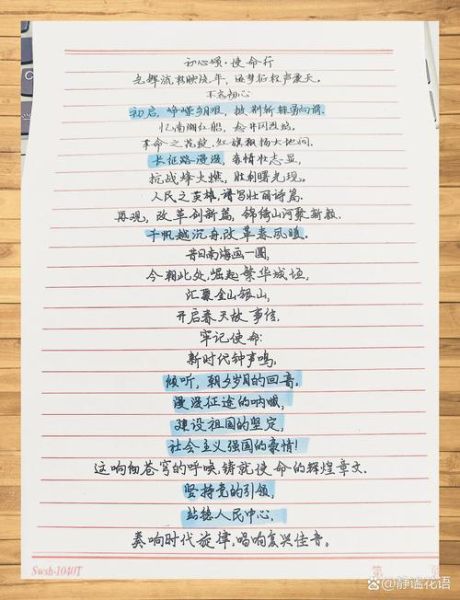 初心颂·使命行
光辉流转映流年，逐梦征程声震天。
不忘初心
初启，峥嵘朝暾，披荆斩棘勇向前。
忆南湖红船，
革命之花绽，红旗飘扬大地间。
长征路漫漫，豪情壮志显，
抗战烽火燃，胜利曙光现。
人民之英雄，谱写壮丽诗篇。
再观，改革创新篇，锦绣山河聚新颜。
千帆越沉舟，改革春风暖。
昔日南海画一圈，
今朝此处，崛起繁华城垣，
汇聚金山银山，
开启春天故事传。
牢记使命：
新时代钟声鸣，
倾听，朝夕岁月的回音，
漫漫征途的呐喊，
建设祖国的坚定，
社会主义强国的豪情！
这响彻苍穹的呼唤，铸就使命的辉煌章文。
坚持党的引领，
站稳人民中心，
奏响时代旋律，唱响复兴佳音。
Swsh-1040T
第
@静谧花语